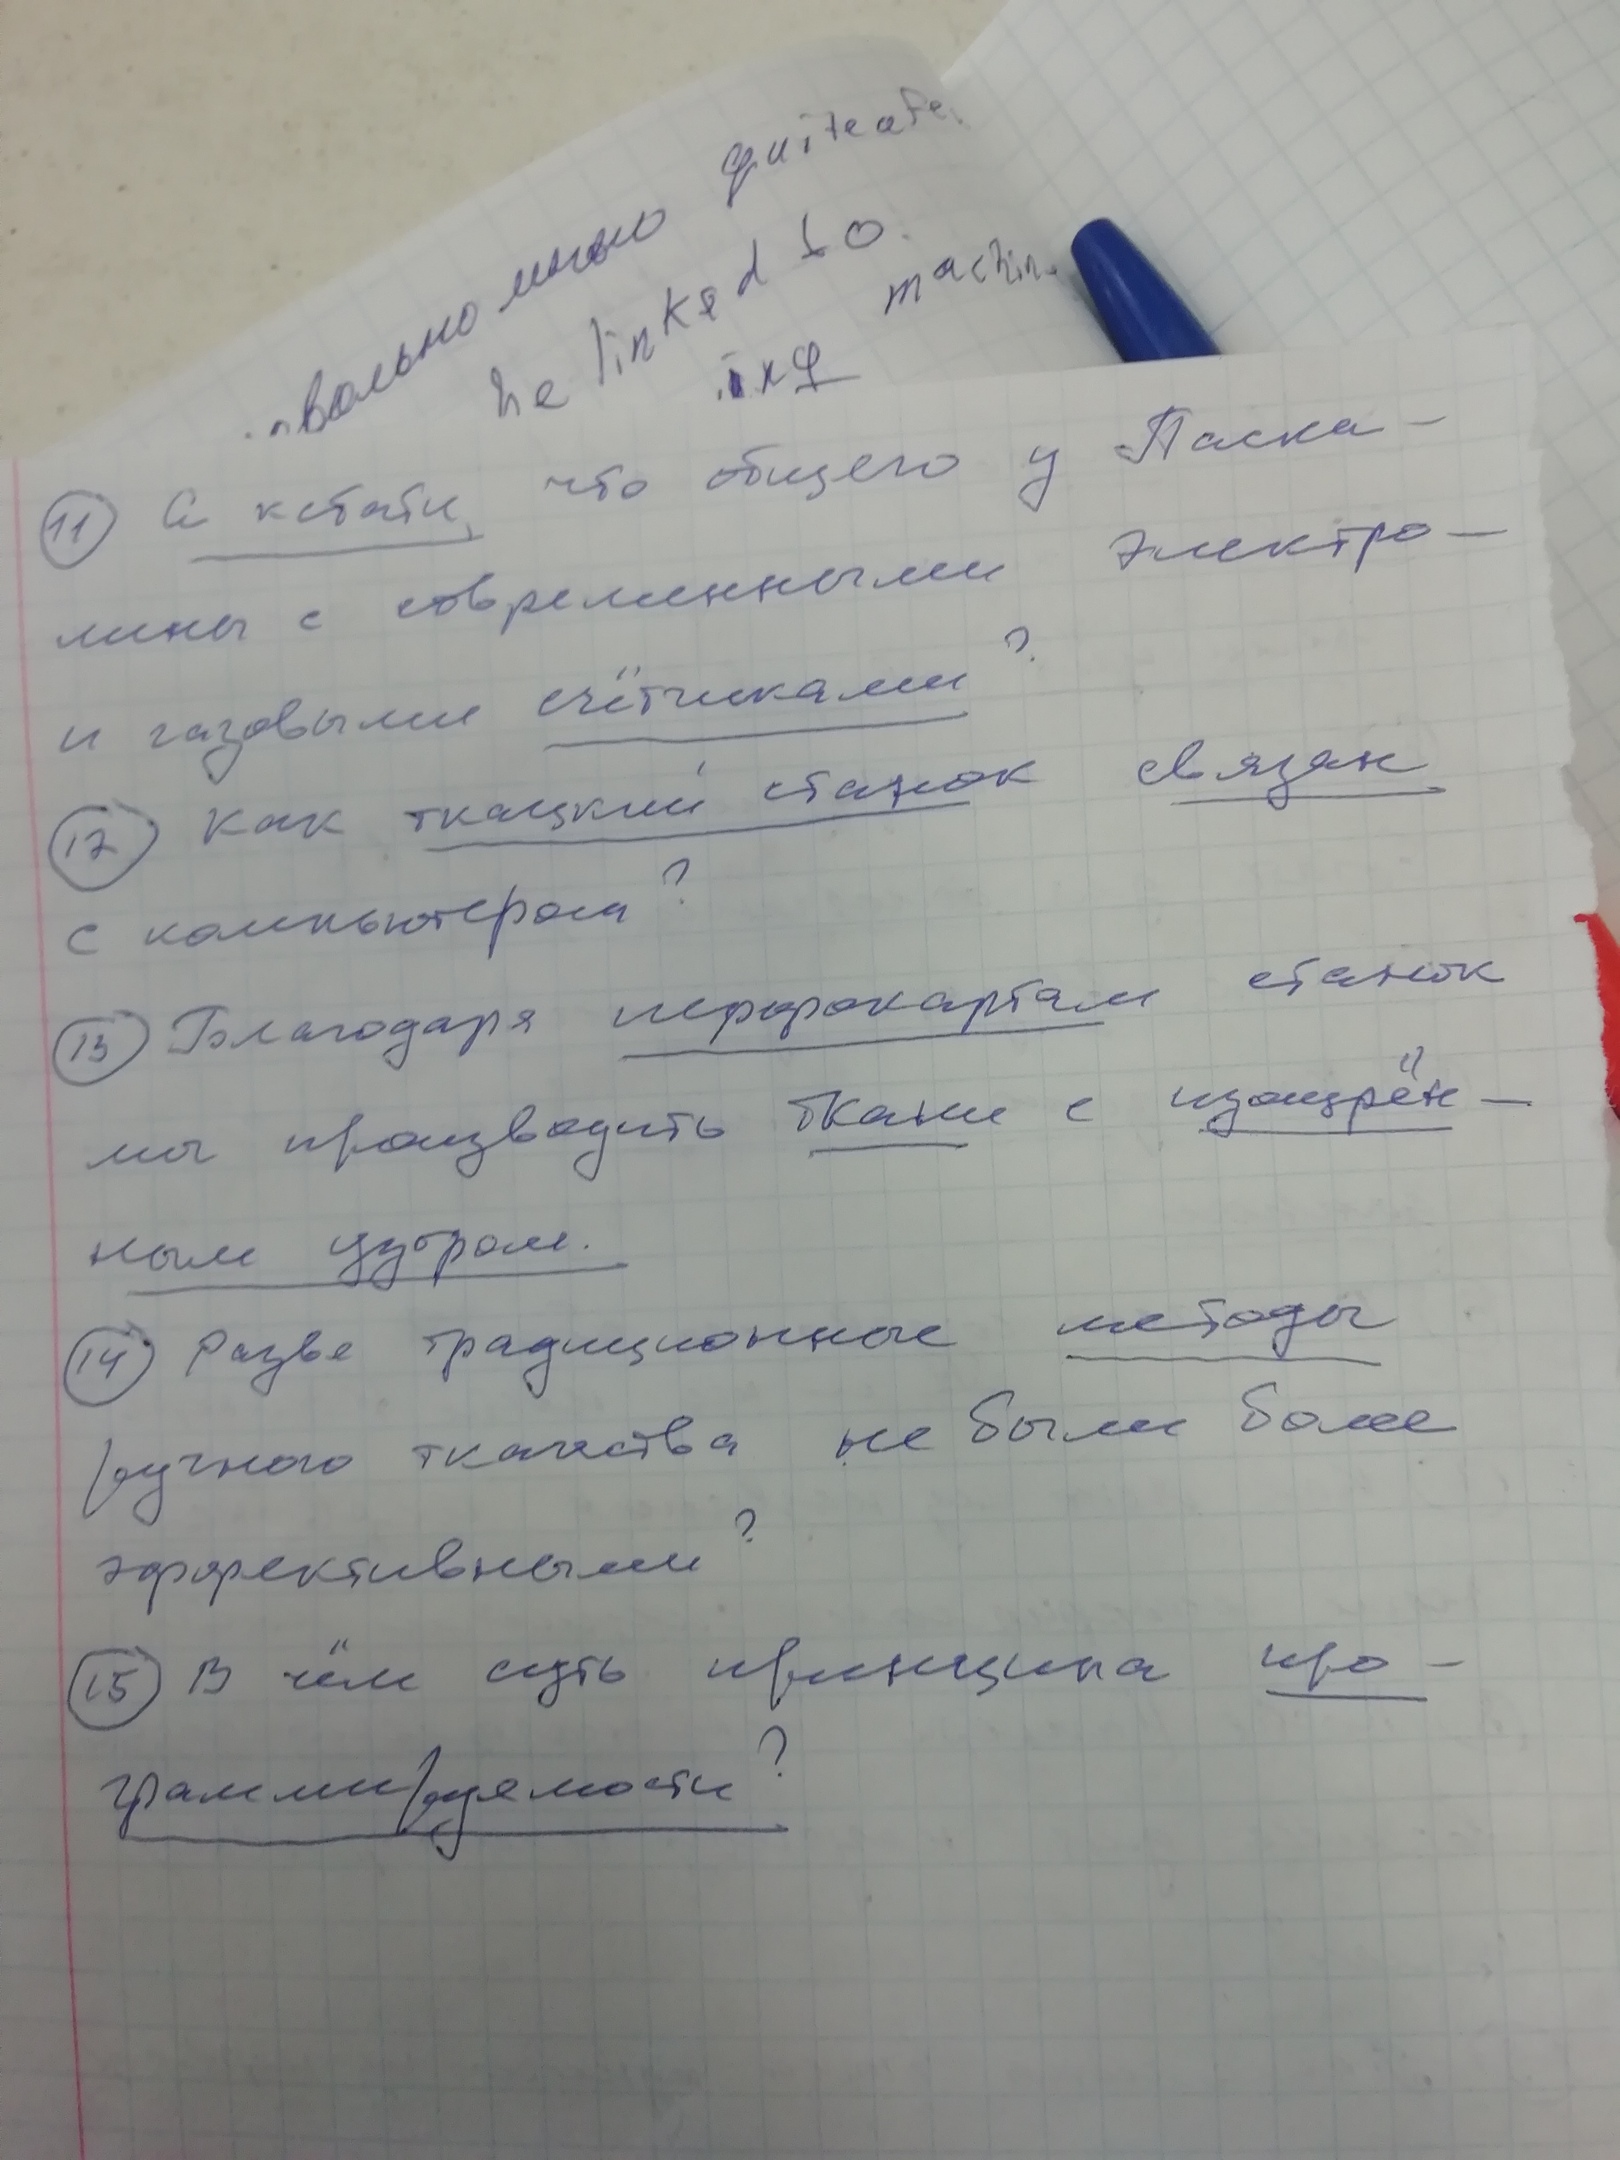 вольно много quite a fe
be linked to.
ing machin
11 А кстати, что общего у Паска-
лины с современными электро-
и газовыми счётчиками?
12 Как ткацкий станок связан
с компьютером?
13 Благодаря перфокартам станок
мог производить ткани с изощрён-
ным узором.
14 Разве традиционные методы
ручного ткачества не были более
эффективными?
15 В чём суть принципа про-
граммируемости?